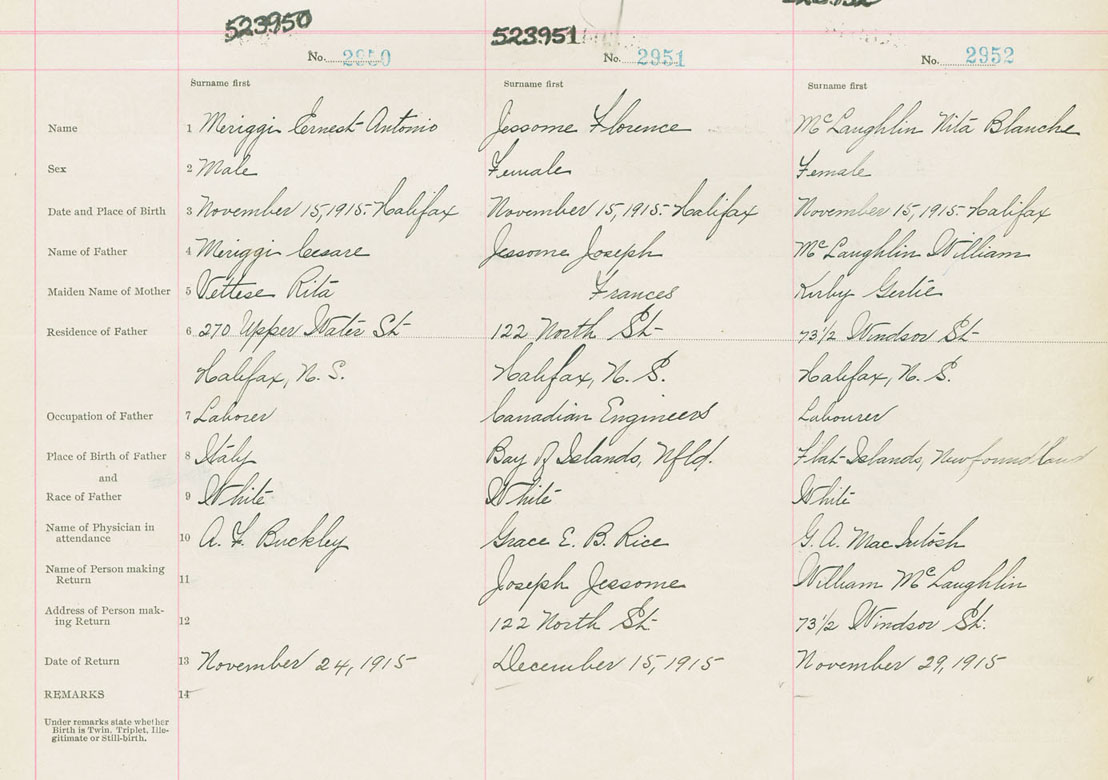 523950 523951
No. 2950 No. 2951 No. 2952
Surname first Surname first Surname first
Name 1 Meriggi Ernest Antonio Jessome Florence McLaughlin Nita Blanche
Sex 2 Male Female Female
Date and Place of Birth 3 November 15, 1915. Halifax November 15, 1915. Halifax November 15, 1915. Halifax
Name of Father 4 Meriggi Cesare Jessome Joseph McLaughlin William
Maiden Name of Mother 5 Vettese Rita Frances Kirby Gertie
Residence of Father 6 270 Upper Water St. 122 North St. 73 1/2 Windsor St.
Halifax, N. S. Halifax, N. S. Halifax, N. S.
Occupation of Father 7 Laborer Canadian Engineers Labourer
Place of Birth of Father 8 Italy Bay of Islands, Nfld. Flat Islands, Newfoundland
and
Race of Father 9 White White White
Name of Physician in
attendance 10 A. F. Buckley Grace E. B. Rice G. A. MacIntosh
Name of Person making
Return 11 Joseph Jessome William McLaughlin
Address of Person mak-
ing Return 12 122 North St. 73 1/2 Windsor St.
Date of Return 13 November 24, 1915 December 15, 1915 November 29, 1915
REMARKS 14
Under remarks state whether
Birth is Twin, Triplet, Ille-
gitimate or Still-birth.